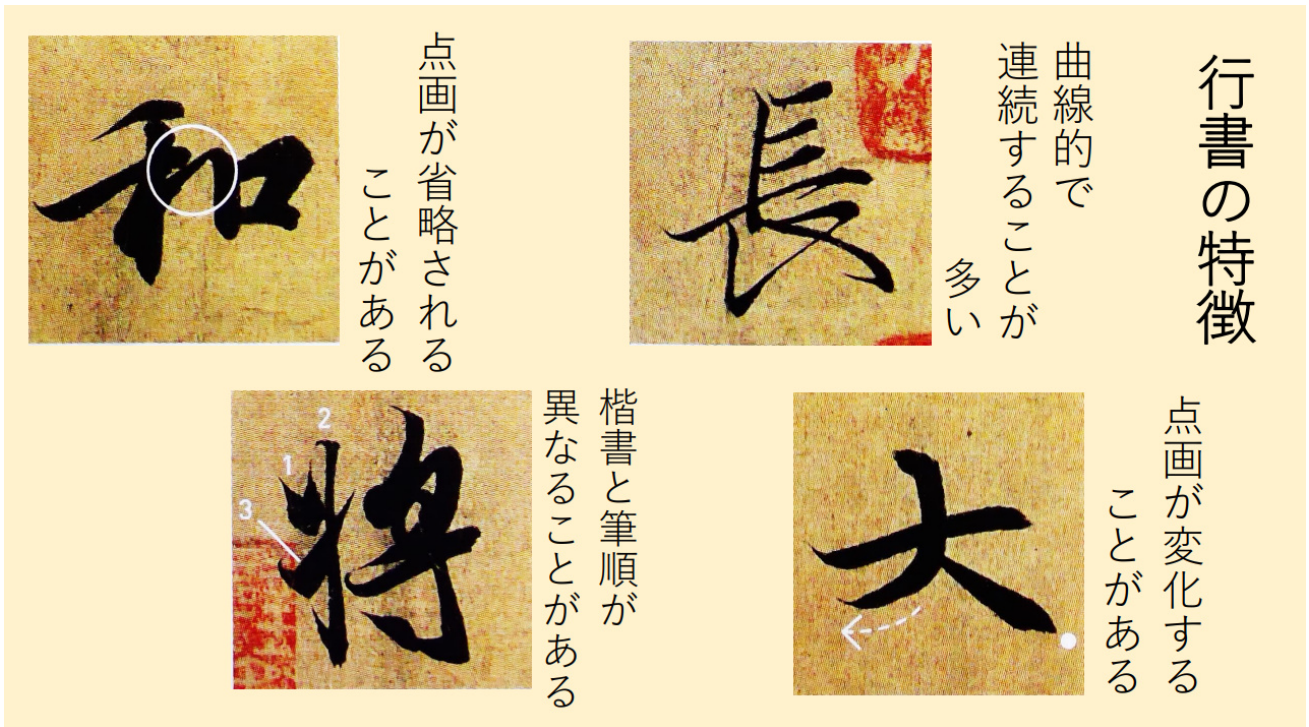 行書の特徴
曲線的で
連続することが
多い
長
点画が省略される
ことがある
和
点画が変化する
ことがある
大
楷書と筆順が
異なることがある
将
1
2
3